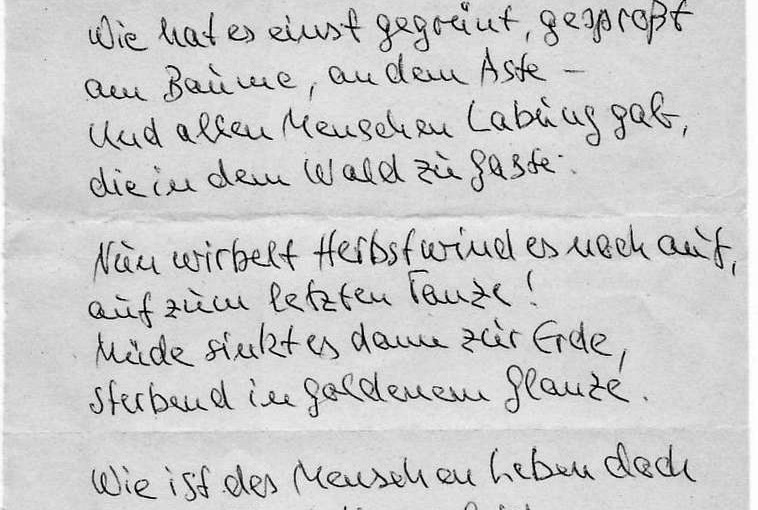 Wie hat es einst gegrünt, gesproßt
am Baume, an dem Aste –
Und allen Menschen Labung gab,
die in dem Wald zu Gaste.
Nun wirbelt Herbstwind es noch auf,
auf zum letzten Tanze!
Müde sinkt es dann zur Erde,
sterbend in goldenem Glanze.
Wie ist des Menschen Leben doch